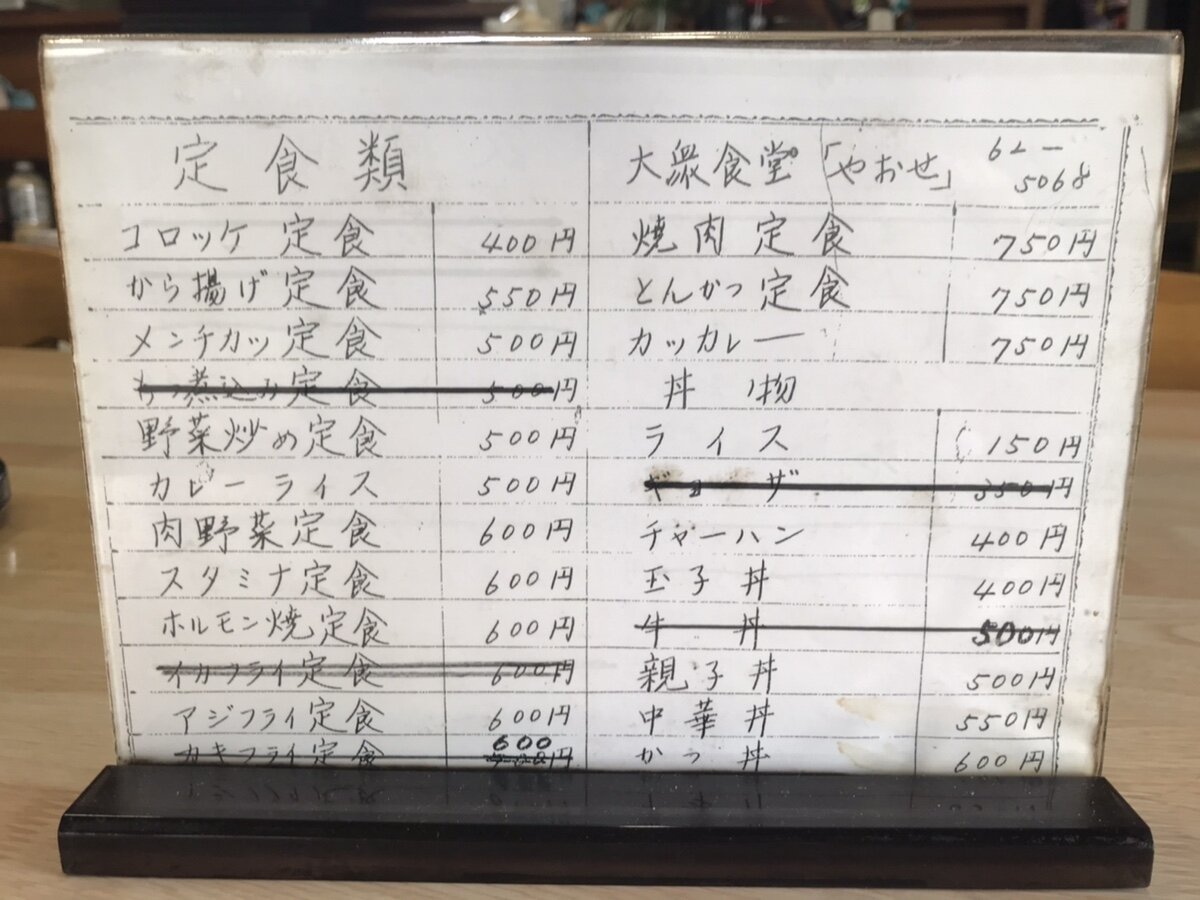 定食類
コロッケ定食 400円
から揚げ定食 550円
メンチカツ定食 500円
もつ煮込み定食 500円
野菜炒め定食 500円
カレーライス 500円
肉野菜定食 600円
スタミナ定食 600円
ホルモン焼定食 600円
イカフライ定食 600円
アジフライ定食 600円
カキフライ定食 600円
大衆食堂「やおせ」 62-5068
焼肉定食 750円
とんかつ定食 750円
カツカレー 750円
丼物
ライス 150円
ギョーザ 350円
チャーハン 400円
玉子丼 400円
牛丼 500円
親子丼 500円
中華丼 550円
かつ丼 600円